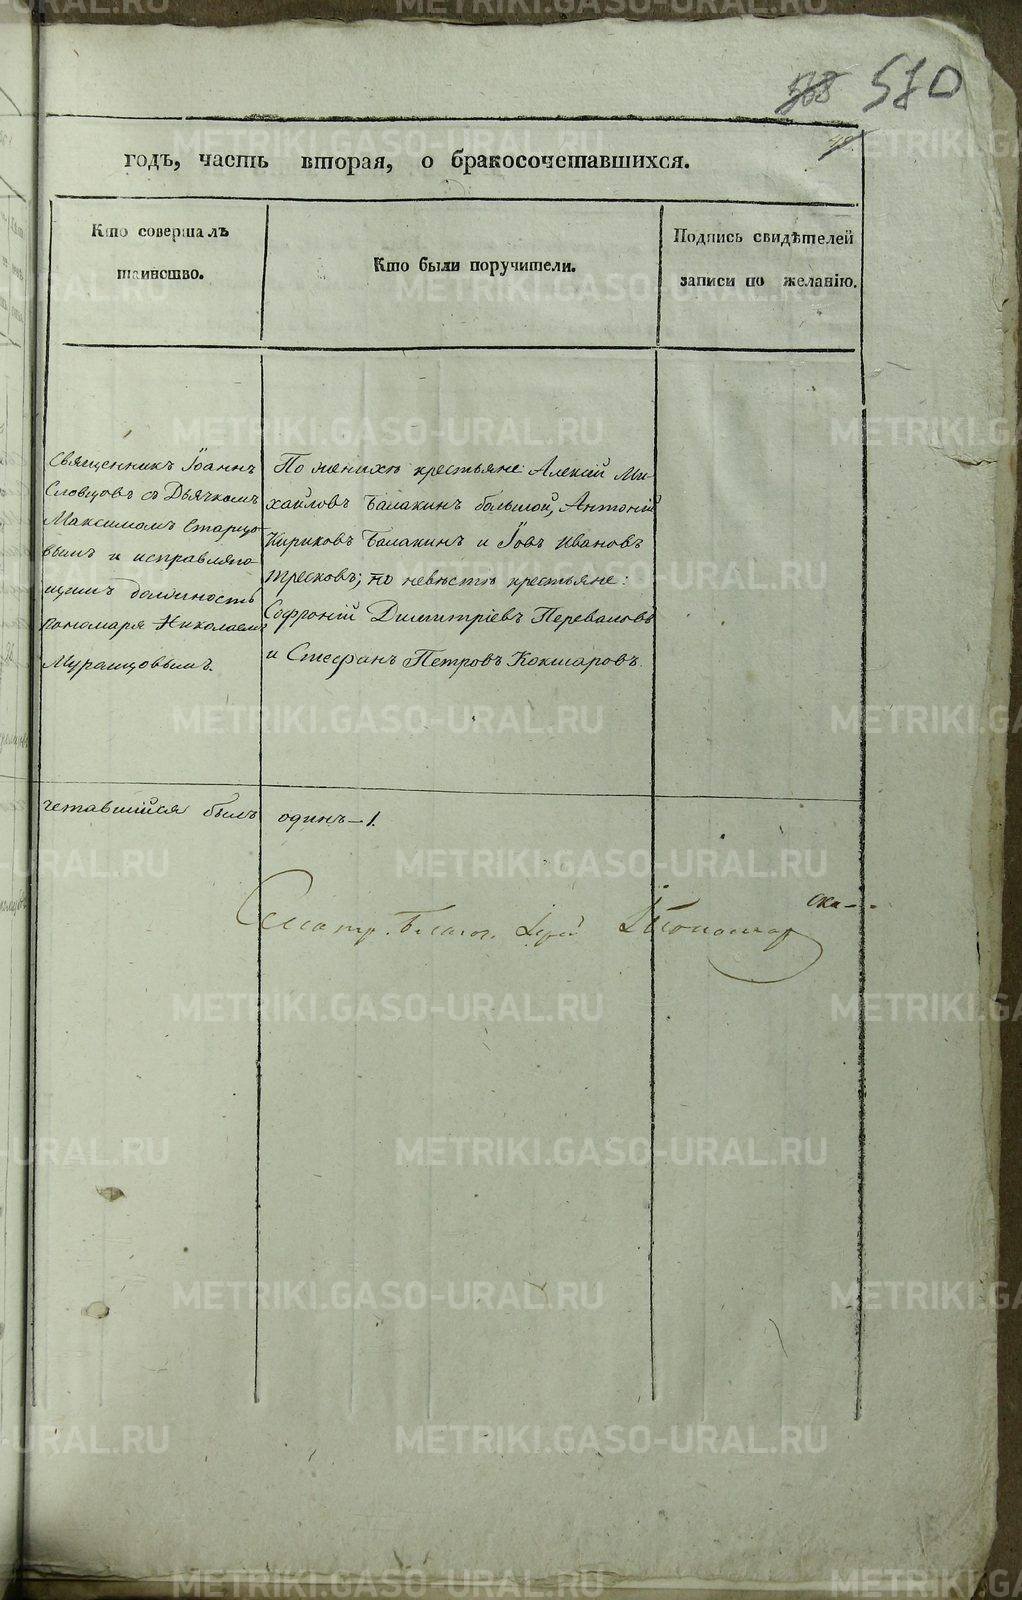 570
годъ, часть вторая, о бракосочетавшихся.
Кто совершалъ
таинство.
Кто были поручители.
Подпись свидѣтелей
записи по желанію.
Священникъ Іоаннъ
Словцовъ съ Дьячкомъ
Максимомъ Старцо-
вымъ и исправляю-
щимъ должность
пономаря Николаемъ
Мурашовымъ.
По женихѣ крестьяне: Алексій Ми-
хайловъ Балакинъ большой, Антоній
Кириковъ Балакинъ и Іовъ Ивановъ
Тресковъ; по невѣстѣ крестьяне:
Софроній Димитріевъ Переваловъ
и Стефанъ Петровъ Кокшаровъ.
четавшійся былъ одинъ – 1.
METRIKI.GASO-URAL.RU